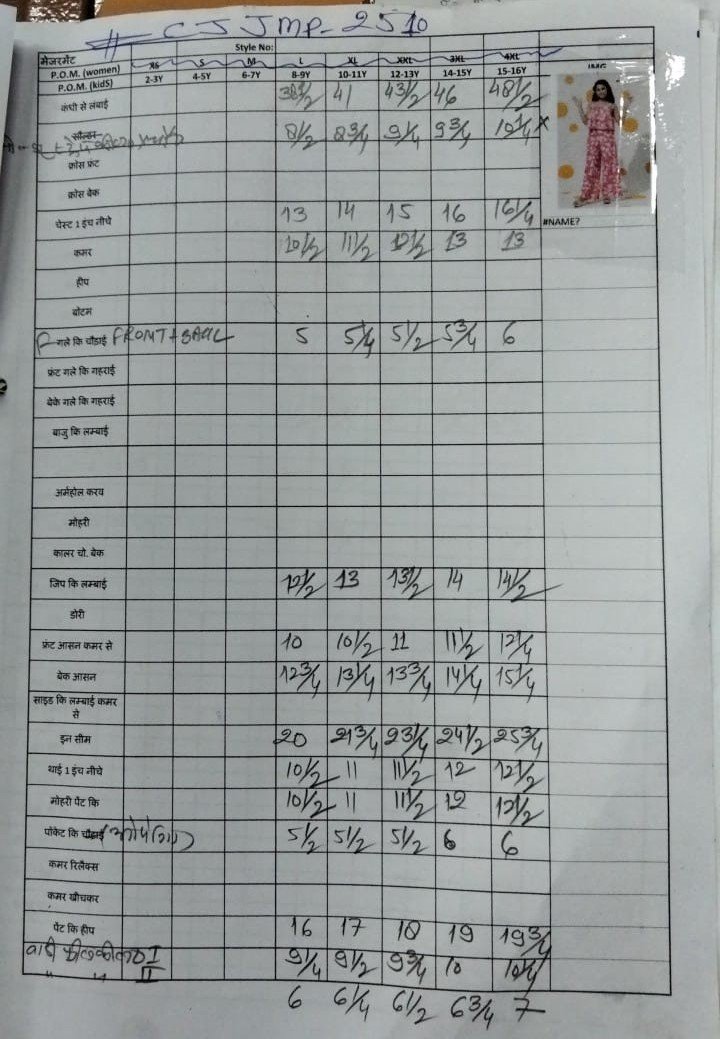 # CJJMP-2510
Style No:
मेजरमेंट XS S M L XL XXL 3XL 4XL
P.O.M. (women) 2-3Y 4-5Y 6-7Y 8-9Y 10-11Y 12-13Y 14-15Y 15-16Y
P.O.M. (kidS)
कंधी से लंबाई 38 1/2 41 43 1/2 46 48 1/2
सोल्डर 8 1/2 8 3/4 9 1/4 9 3/4 10 1/4 x
क्रोस फ्रंट
क्रोस बेक
चेस्ट 1 इंच नीचे 13 14 15 16 16 1/4
#NAME?
कमर 10 1/2 11 1/2 12 1/2 13 13
हीप
बोटम
गले कि चौडाई FRONT+BACK 5 5 1/4 5 1/2 5 3/4 6
फ्रंट गले कि गहराई
बेके गले कि गहराई
बाजु कि लम्बाई
अर्महोल करय
मोहरी
कालर चो. बेक
जिप कि लम्बाई 12 1/2 13 13 1/2 14 14 1/2
डोरी
फ्रंट आसन कमर से 10 10 1/2 11 11 1/2 12 1/4
बेक आसन 12 3/4 13 1/4 13 3/4 14 1/4 15 1/4
साइड कि लम्बाई कमर
से
इन सीम 20 21 3/4 23 1/4 24 1/2 25 3/4
थाई 1 इंच नीचे 10 1/2 11 11 1/2 12 12 1/2
मोहरी पेंट कि 10 1/2 11 11 1/2 12 12 1/2
पॉकेट कि चौडाई 5 1/2 5 1/2 5 1/2 6 6
कमर रिलैक्स
कमर खीचकर
पेंट कि हीप 16 17 18 19 19 3/4
I 9 1/4 9 1/2 9 3/4 10 10 1/4
" " II 6 6 1/4 6 1/2 6 3/4 7